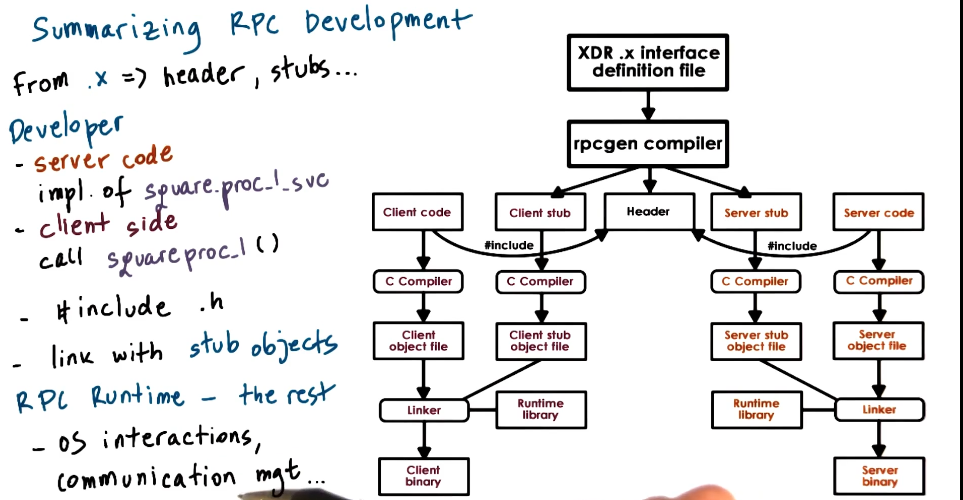 Summarizing RPC Development
From .x => header, stubs...
Developer
- server code
impl. of square_proc_1_svc
- client side
call squareproc_1 ()
- #include .h
- link with stub objects
RPC Runtime - the rest
- OS interactions,
communication mgt...
XDR .x interface
definition file
rpcgen compiler
Client code
Client stub
Header
Server stub
Server code
#include
#include
C Compiler
C Compiler
C Compiler
C Compiler
Client
object file
Client stub
object file
Server stub
object file
Server
object file
Linker
Runtime
library
Runtime
library
Linker
Client
binary
Server
binary